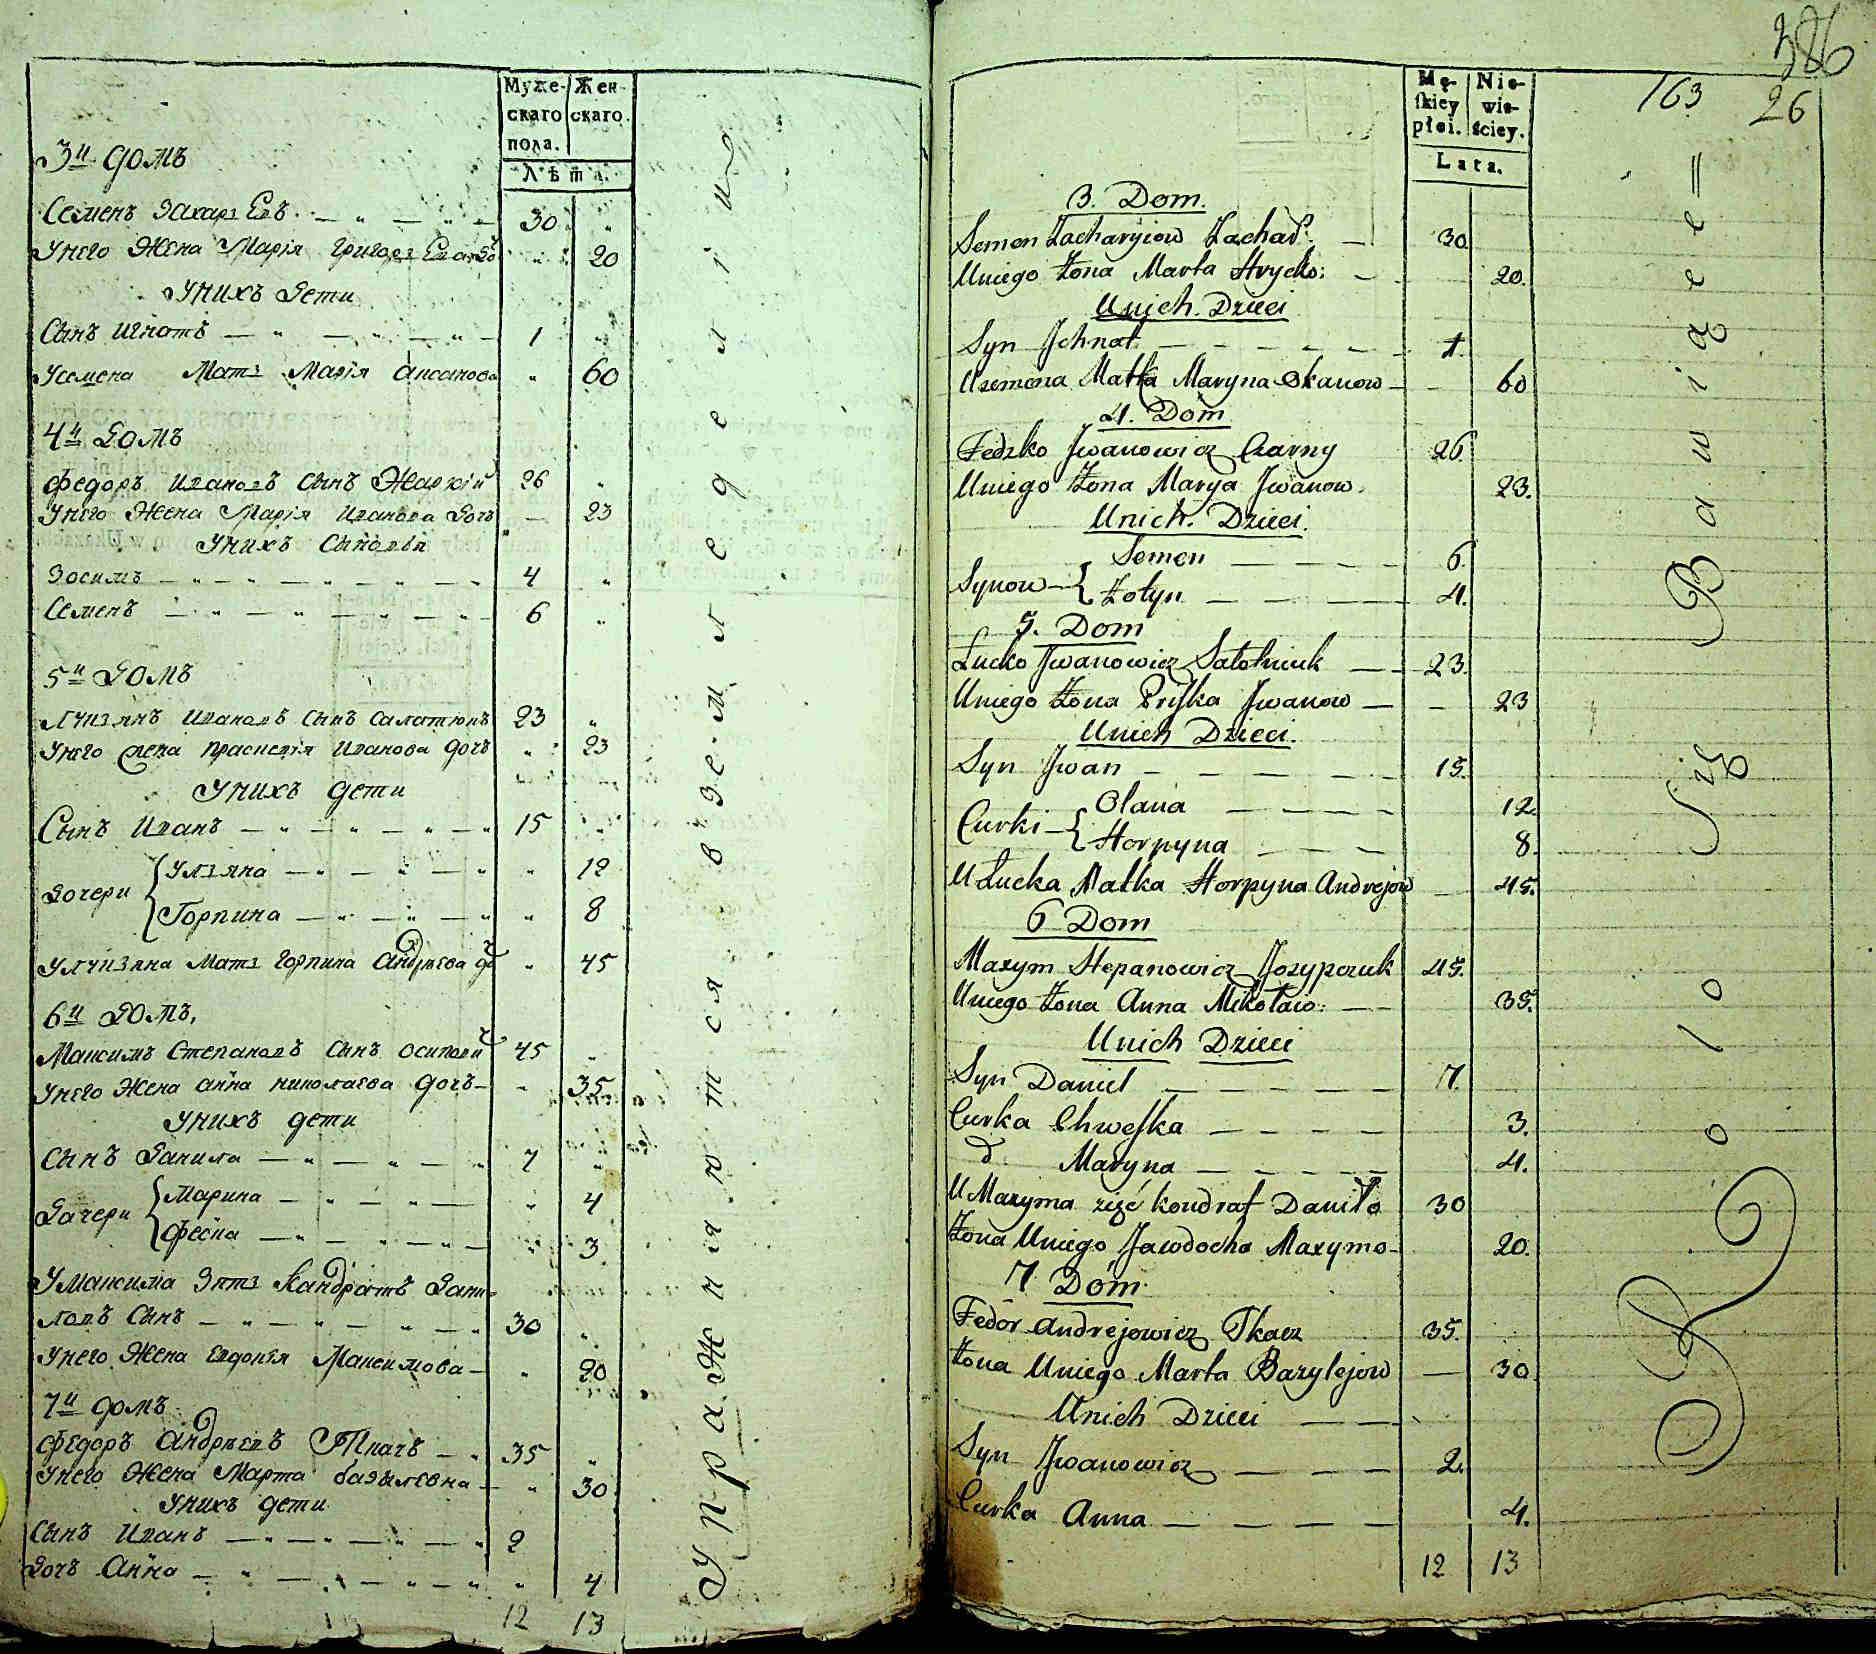 Муже-
скаго
пола.
Жен
скаго.
Лѣта.
3й домъ
Семенъ Захар Евъ 30 „
Унего Жена Марія Григор „ 20
Унихъ Дети
Сынъ Игнатъ 1 „
Усемена Мать Марія „ 60
4й Домъ
Федоръ Ивановъ Сынъ Жаркій 26 „
Унего Жена Марія Иванова Дочь — 23
Унихъ Сыновья
Зосимъ 4 „
Семенъ 6 „
5й Домъ
Лукіянъ Ивановъ Сынъ 23 „
Унего жена Прасковія Иванова дочъ „ 23
Унихъ дети
Сынъ Иванъ 15 „
Дочери { Ульяна „ 12
Горпина „ 8
Улукіяна Мать Горпина Андрѣева „ 45
6й Домъ,
Максимъ Степановъ Сынъ 45 „
Унего Жена Анна николаева дочъ „ 35
Унихъ дети
Сынъ Данила 7 „
Дочери { Марина „ 4
Феска „ 3
Умаксима Зять Кандратъ Дани-
ловъ Сынъ 30 „
Унего Жена Евдокія Максимова „ 20
7й домъ
Федоръ Андрѣевъ Ткачъ 35 „
Унего Жена Марта базылевна „ 30
Унихъ дети
Сынъ Иванъ 2
Дочъ Анна „ 4
12 13
Упражняются въ земледеліи
386
163
26
Mę-
ſkiey
płci.
Nie-
wie-
ściey.
Lata.
3. Dom.
Semen Zacharyiow Zachar. 30.
Uniego Żona Marta Hrycko: 20.
Unich. Dzieci
Syn Jhnat 1.
Usemena Matka Maryna 60
4. Dom
Fedzko Jwanowicz Czarny 26.
Uniego Żona Marya Jwanow. 23.
Unich. Dzieci.
Synow { Semen 6.
Zotyn 4.
5. Dom
Łucko Jwanowicz 23.
Uniego Żona Pryſka Jwanow 23
Unich Dzieci.
Syn Jwan 15.
Curki { Olana 12.
Horpyna 8.
U Łucka Matka Horpyna Andrejow 45.
6 Dom
Maxym Stepanowicz Jozypczuk 45.
Uniego Żona Anna Mikołaio: 35.
Unich Dzieci
Syn Daniel 7.
Curka Chweſka 3.
d Maryna 4.
U Maxyma zięć kondrat Daniło 30
Żona Uniego Jawdocha Maxymo- 20.
7 Dom
Fedor Andrejowicz Tkacz 35.
Żona Uniego Marta Bazylejow 30
Unich Dzieci
Syn Jwanowicz 2.
Curka Anna 4.
12 13
Rolo Się Bawiące=